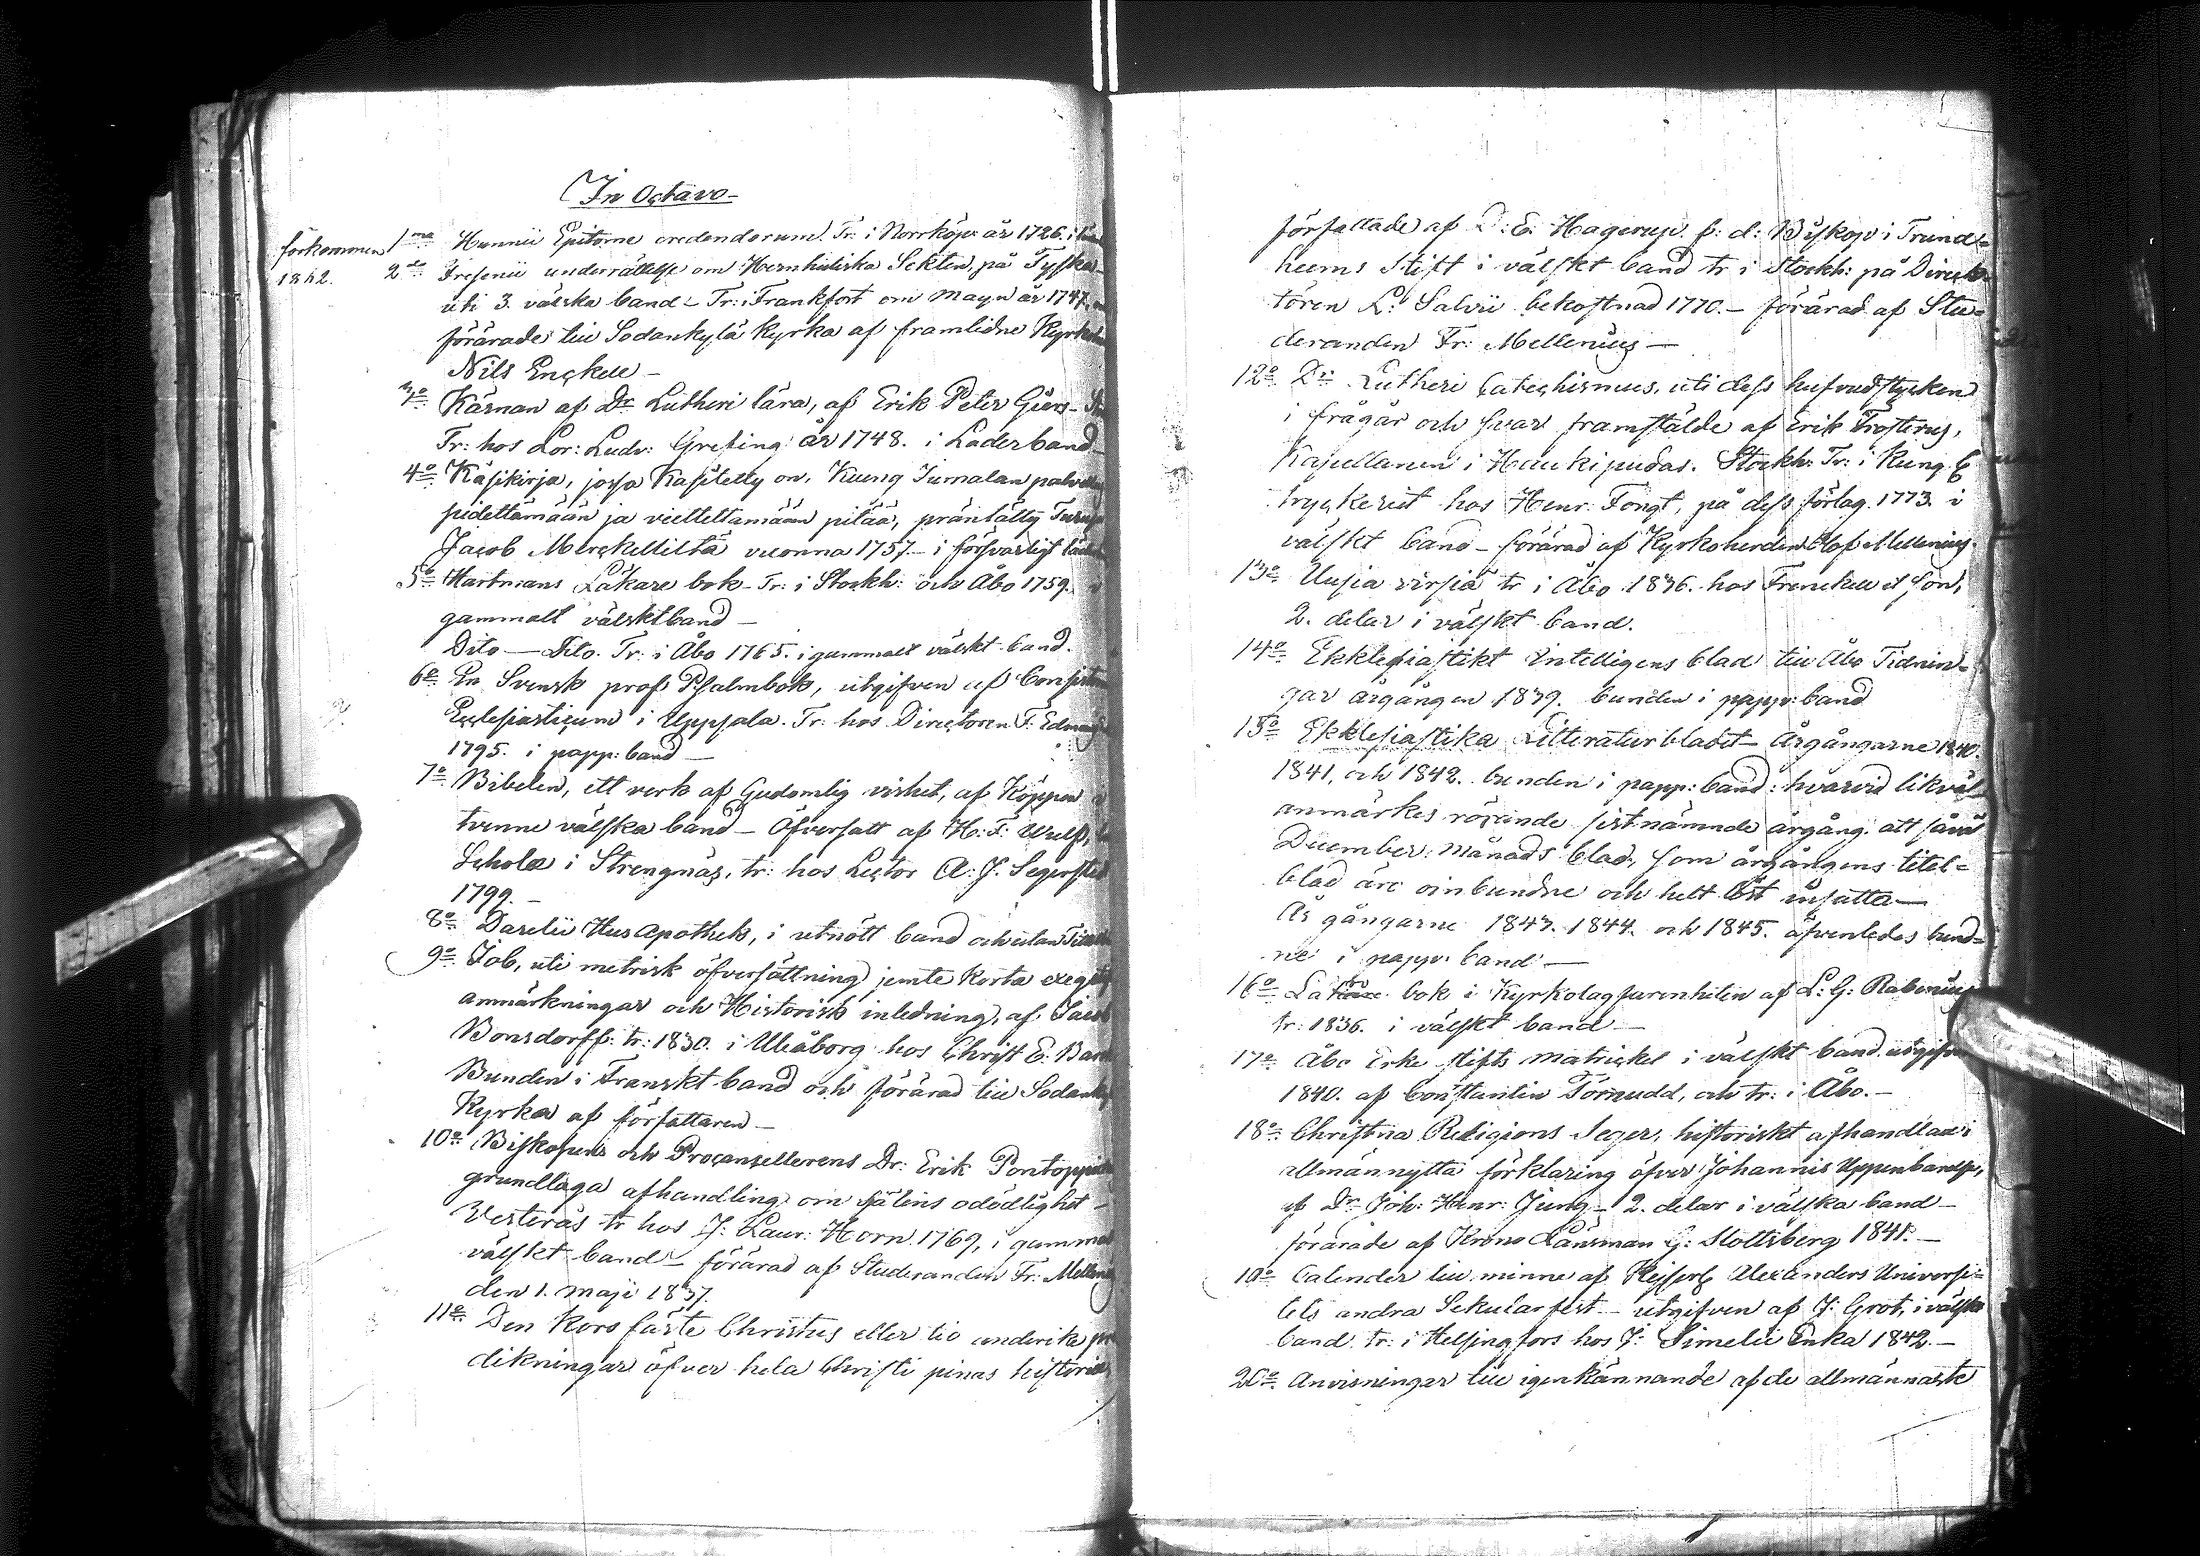 In Octavo
förkommen 1862.
1mo Hunnii Epitome credendorum. Tr: i Norrköp: år 1726. i
2do Fresenii underrättelse om Hernhutiska Sekten, på Tyska
uti 3. välska band - Tr: i Frankfort om Mayn år 1747.
förärade till Sodankylä kyrka af framlidne
Nils Enckell -
3o Kärnan af Dr Lutheri lära, af Erik Peter
Tr: hos Lor: Ludv: Grefing år 1748. i Läderband -
4o Käsikirja, josa Käsitelty on, Kuinga Jumalan
pidettämään ja vietettämään pitää, präntätty
Jacob Merckelliltä vuonna 1757 - i försvarligt
5o Hartmans Läkare bok - Tr: i Stockh: och Åbo 1759.
gammalt välskt band -
Dito — Dito. Tr: i Åbo 1765. i gammalt välskt band.
6o En Svensk prof Psalmbok, utgifven af
Ecclesiasticum i Uppsala. Tr: hos Directoren
1795. i papp: band -
7o Bibelen, ett verk af Gudomlig vishet, af Köppen
tvenne välska band - Öfversatt af H: F:
Schola i Strengnäs, tr: hos Lector A: J. Segerstedt
1799. -
8o Darelii Hus apothek, i utnött band och utan
9o Job, uti metrisk öfversättning jemte korta
anmärkningar och Historisk inledning, af
Bonsdorff. tr: 1830. i Uleåborg hos Christ E: Bark
Bunden i Franskt band och förärad till
Kyrka af författaren -
10o Biskopens och Procansellerens Dr: Erik Pontoppidan
grundlaga afhandling om själens odödlighet -
Vesterås tr hos J: Laur: Horn 1769, i gammal
välskt band - förärad af Studeranden Fr:
den 1. maji 1837.
11o Den Korsfäste Christus eller
dikningar öfver hela Christi pinas
författade af D: E: Hagerup f: d: Byskop i Trund=
heems Stift i välskt band tr i Stockh: på Direk
tören L: Salvii bekostnad 1770. - förärad af Stu=
deranden Fr: Mellenius —
12o Dr: Lutheri Catechismus, uti dess hufvudstycken
i frågar och svar framstälde af Erik Frosterus,
Kapellanen i Haukipudas. Stockh: Tr: i Kung.
tryckeriet hos Henr: Fougt, på dess förlag 1773. i
välskt band - förärad af Kyrkoherden Olof Mellenius.
13o Uusia virsiä tr i Åbo 1836. hos Frenckell et Son,
2. delar i välskt band.
14o Ekklesiastikt Intelligens blad till Åbo Tidnin=
gar årgången 1839. bunden i papp: band
15o Ekklesiastika Litteraturbladet - Årgångarne 1840.
1841, och 1842. bunden i papp: band: hvarvid likväl
anmärkes rörande sistnämnde årgång att såväl
December månads blad, som årgångens titel=
blad äro oinbundne och helt löst insatta —
Årgångarne 1843. 1844. och 1845. äfvenledes bund=
ne i papp: band —
16o Läro bok i Kyrkolagfarenheten af L: G: Rabenius
tr: 1836. i välskt band —
17o Åbo Erke stifts matrickel i välskt band utgifven
1840. af Constantin Törnudd, och tr: i Åbo. -
18o Christna Religions Seger, historiskt afhandlad i
allmännytta förklaring öfver Johannis Uppenbarelse,
af Dr Joh: Henr: Jung - 2. delar i välska band -
förärade af Krono Länsman G: Slottsberg 1841. -
19o Calender till minne af Kejserl: Alexanders Universi=
tets andra Sekularfest - utgifven af J: Grot, i välska
band. tr: i Helsingfors hos J: Simelii Enka 1842. -
20o Anvisningar till igenkännande af de allmännaste